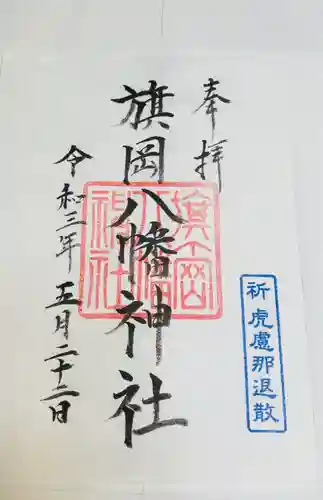 奉拝
旗岡八幡神社
令和三年 五月二十二日
旗岡
八幡
神社
祈 虎慮那退散